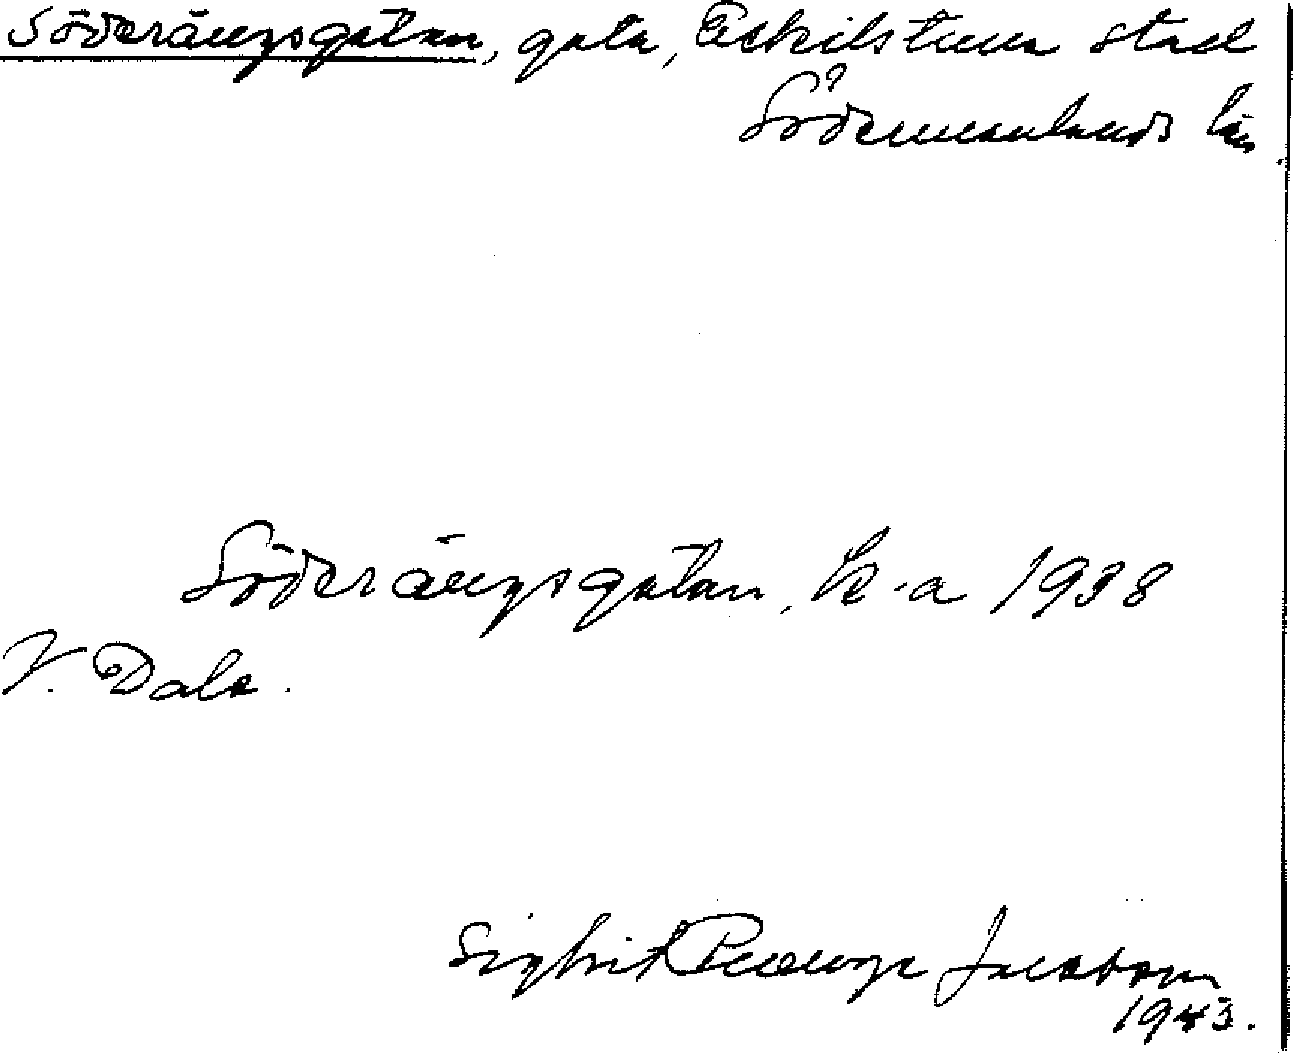 Söderängsgatan, gata, Eskilstuna stad
Södermanlands län
Söderängsgatan, k-a 1938
V. Dala.
Sigbrit Jacobson
1943.